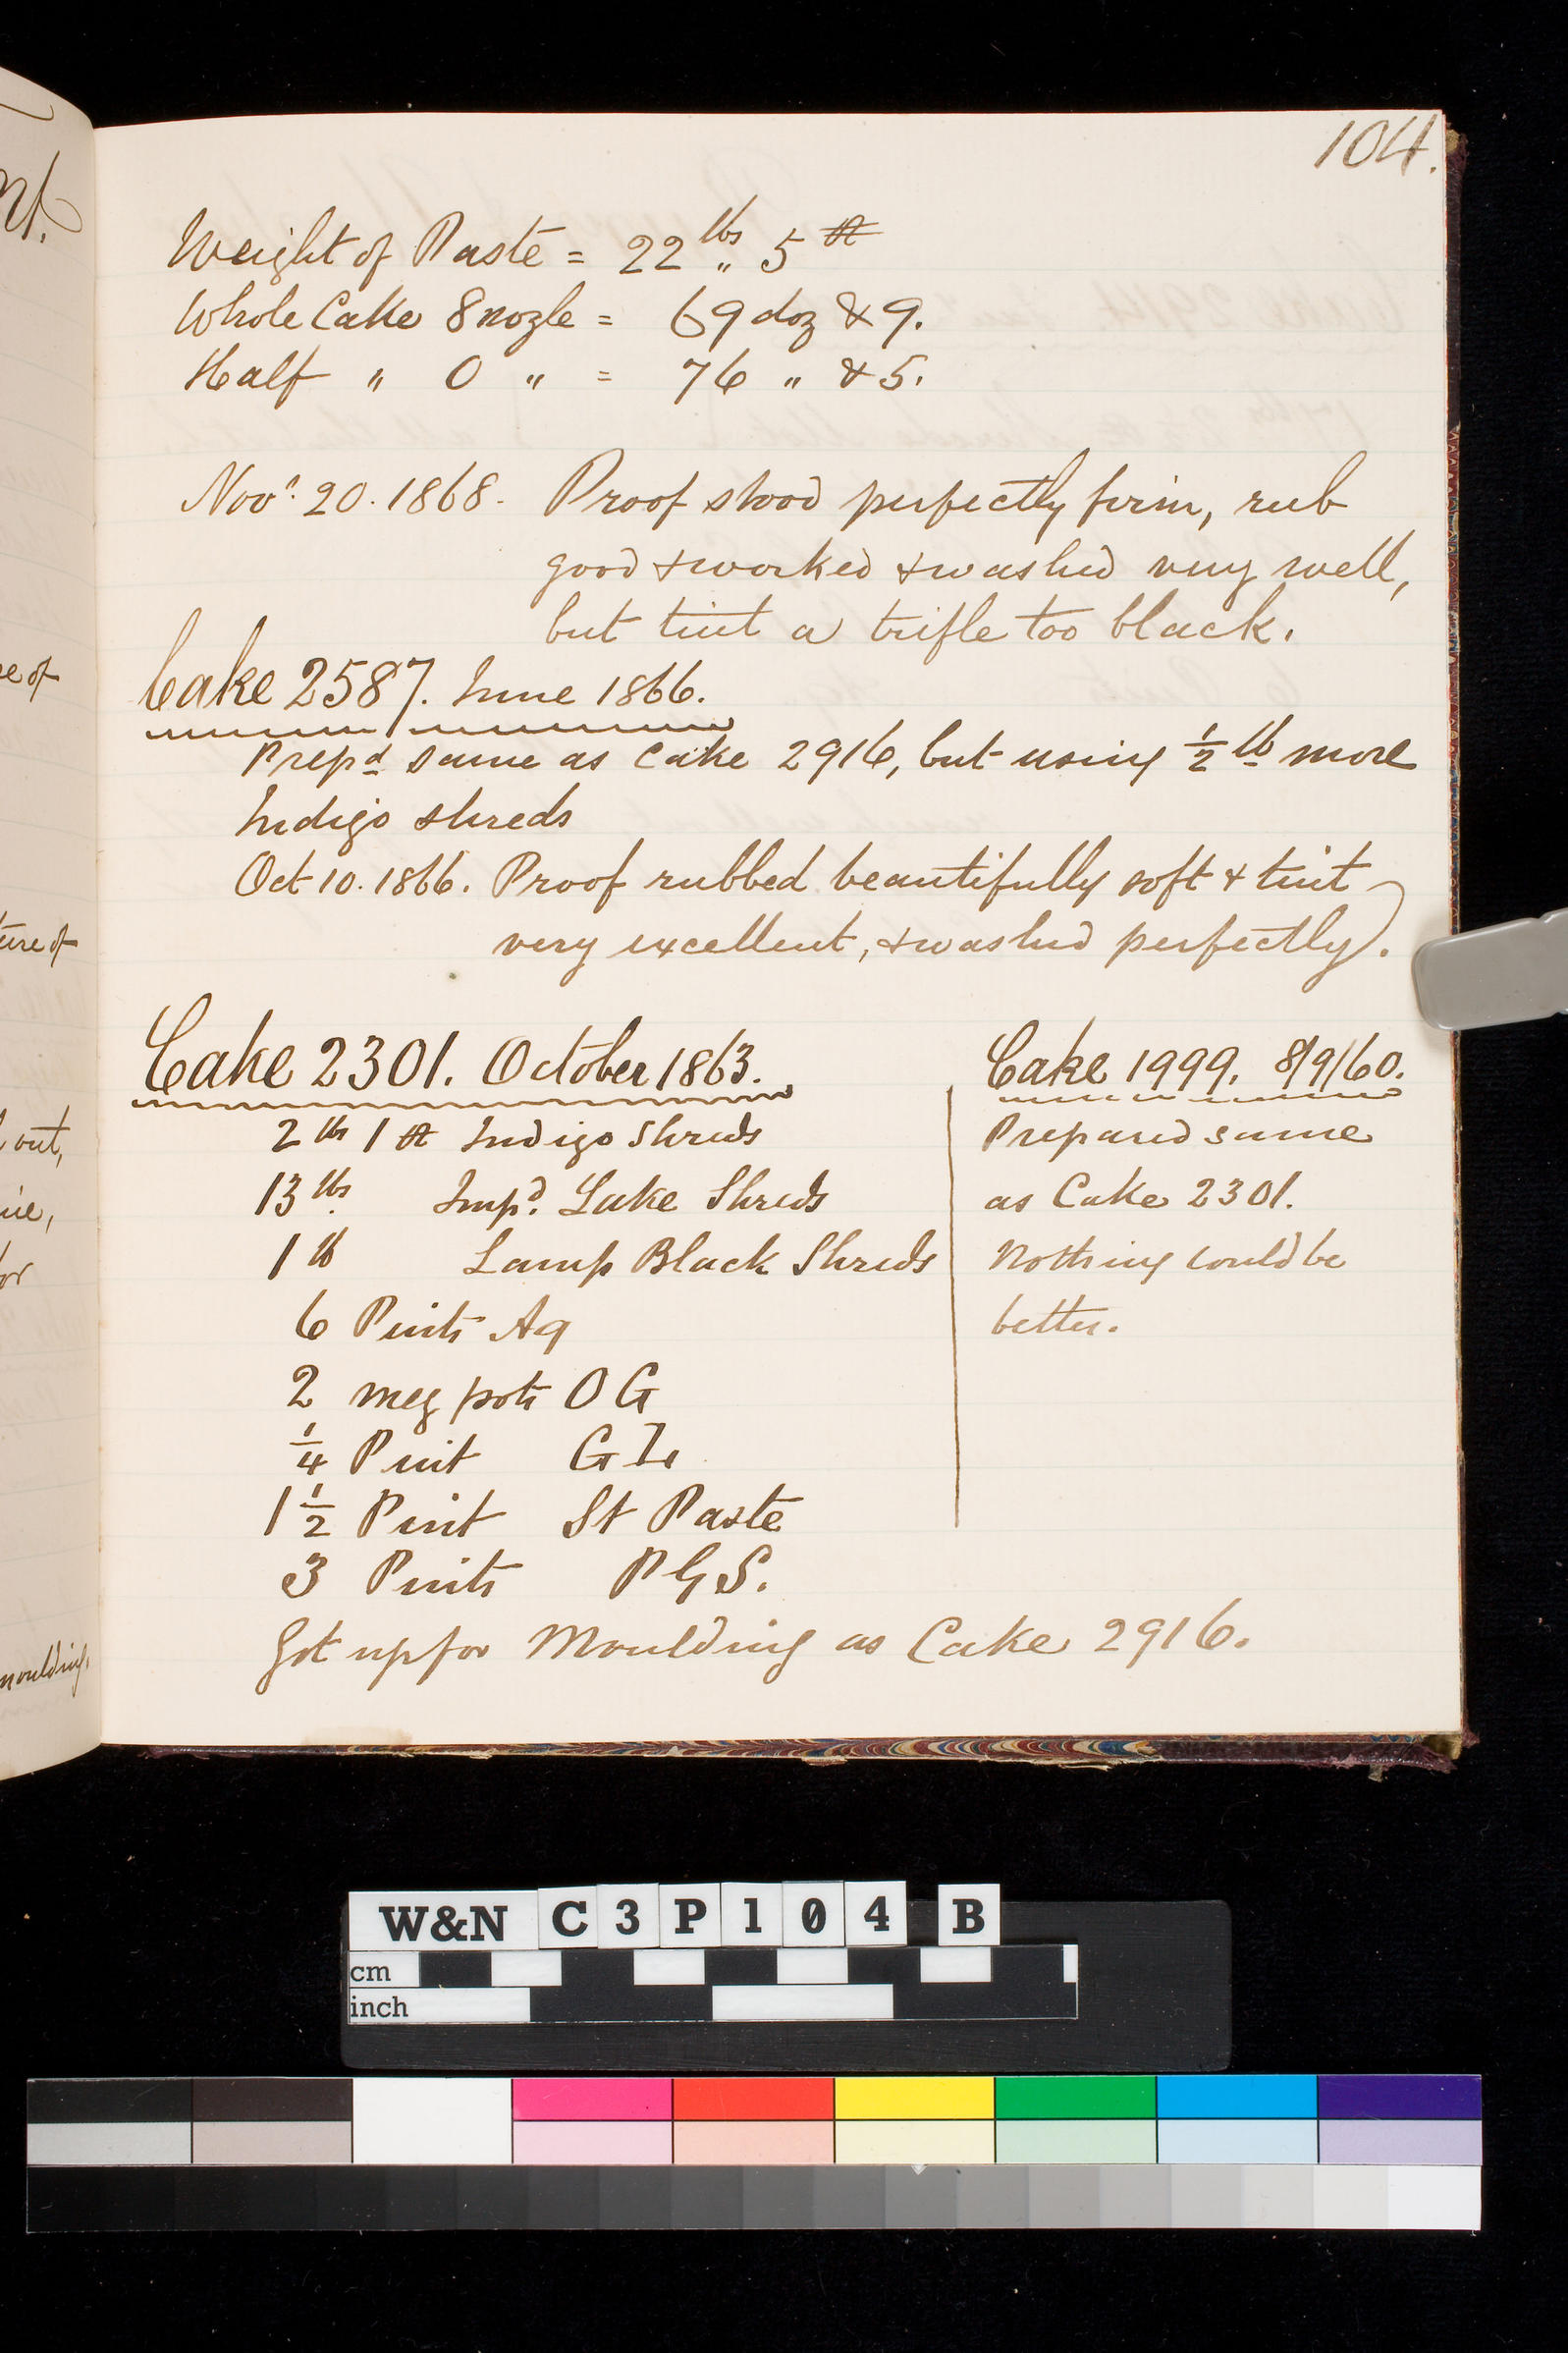 104.
Weight of Paste = 22 lbs „ 5
Whole Cake 8 nozle = 69 doz & 9.
Half „ 0 „ = 76 „ & 5.
Novr. 20. 1868. Proof stood perfectly firm, rub
good & worked & washed very well,
but tint a trifle too black.
Cake 2587. June 1866.
Prepd same as Cake 2916, but using ½ lb more
Indigo shreds
Oct 10. 1866. Proof rubbed beautifully soft & tint
very excellent, & washed perfectly.
Cake 2301. October 1863.
2 lbs 1 Indigo Shreds
13 lbs. Impd. Lake Shreds
1 lb Lamp Black Shreds
6 Pints Aq
2 meg pots O G
¼ Pint G L
1 ½ Pint St Paste
3 Pints P G S.
Got up for Moulding as Cake 2916.
Cake 1999. 8/9/60.
Prepared same
as Cake 2301.
Nothing could be
better.
nt.
re of
ture of
out,
ine,
or
moulding.
W&N C3P104 B
cm
inch